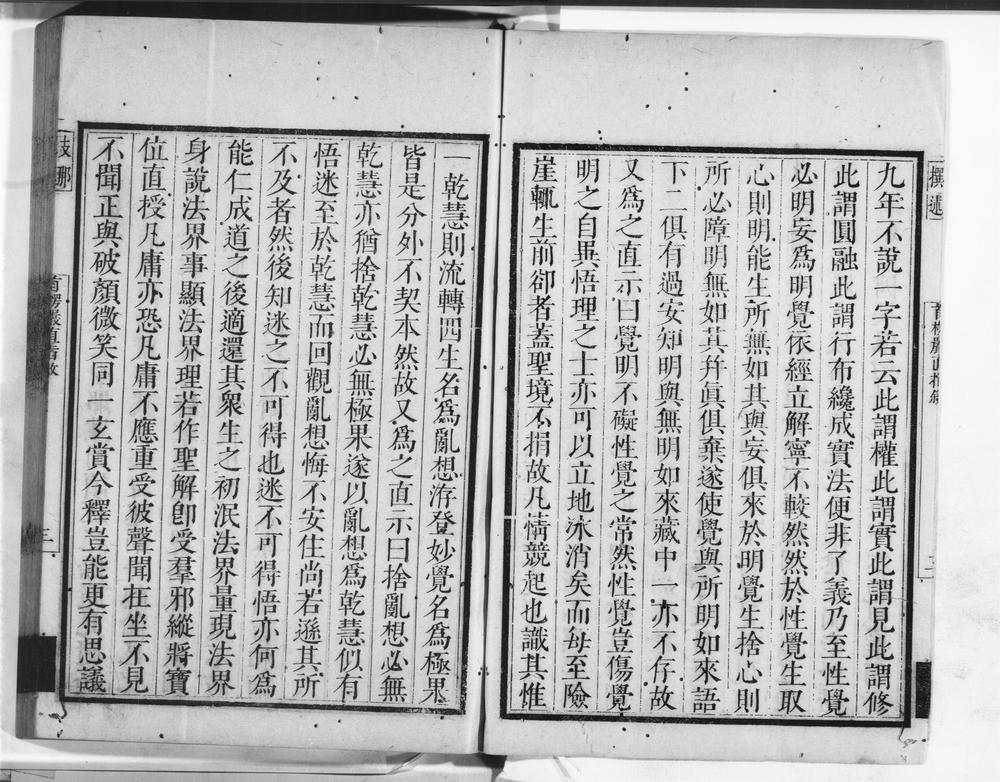 撰述
九年不說一字若云此謂權此謂實此謂見此謂修
此謂圓融此謂行布纔成實法便非了義乃至性覺
必明妄爲明覺依經立解寧不較然然於性覺生取
心則明能生所無如其與妄俱來於明覺生捨心則
所必障明無如其幷眞俱棄遂使覺與所明如來語
下二俱有過安知明與無明如來藏中一亦不存故
又爲之直示曰覺明不礙性覺之常然性覺豈傷覺
明之自異悟理之士亦可以立地冰消矣而每至險
崖輒生前卻者蓋聖境不捐故凡情競起也識其惟
一乾慧則流轉四生名爲亂想洊登妙覺名爲極果
皆是分外不契本然故又爲之直示曰捨亂想必無
乾慧亦猶捨乾慧必無極果遂以亂想爲乾慧似有
悟迷至於乾慧而回觀亂想悔不安住尚若遜其所
不及者然後知迷之不可得也迷不可得悟亦何爲
能仁成道之後適還其衆生之初泯法界量現法界
身說法界事顯法界理若作聖解卽受羣邪縱將寶
位直授凡庸亦恐凡庸不應重受彼聲聞在坐不見
不聞正與破顏微笑同一玄賞今釋豈能更有思議
首楞嚴直指
三